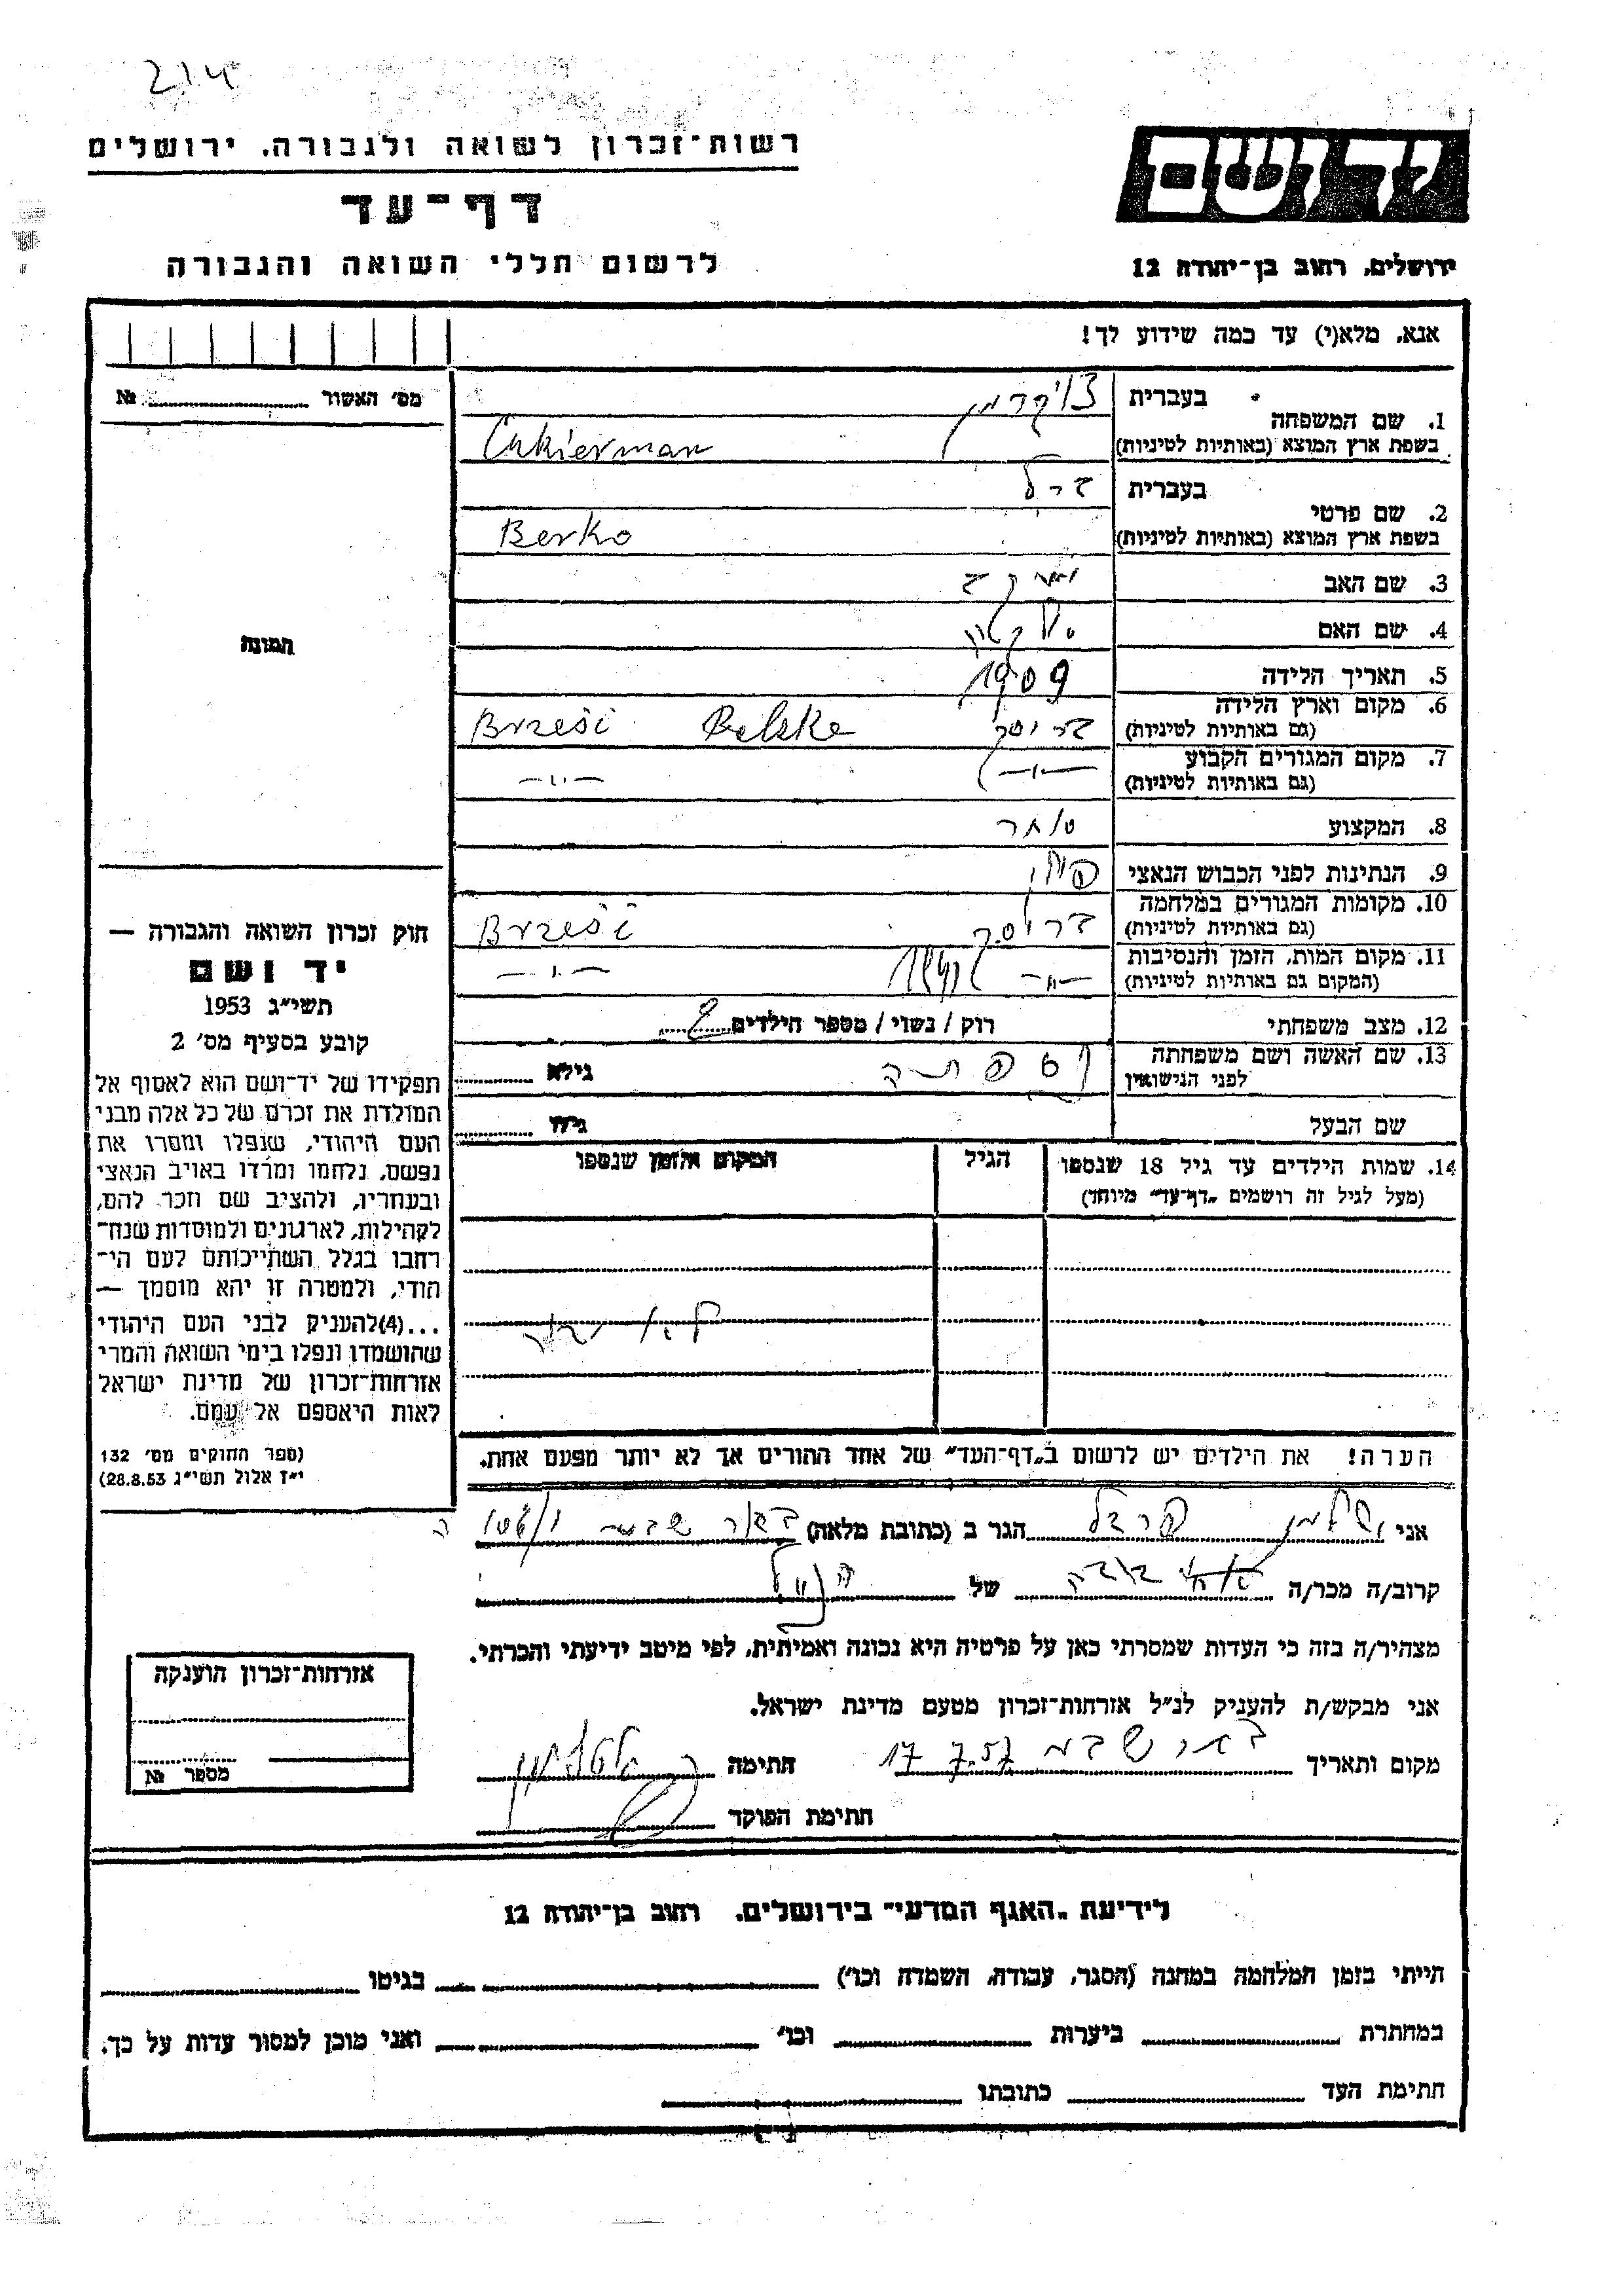 214
רשות־זכרון לשואה ולגבורה, ירושלים
דף־עד
לרשום חללי השואה והגבורה
יד ושם
ירושלים, רחוב בן־יהודה 12
אנא, מלא(י) עד כמה שידוע לך!
מס׳ האשור № 
1. שם המשפחה
בעברית צוקרמן
בשפת ארץ המוצא (באותיות לטיניות) Cukierman
2. שם פרטי
בעברית ברל
בשפת ארץ המוצא (באותיות לטיניות) Berko
3. שם האב יעקב
4. שם האם
5. תאריך הלידה 1909
6. מקום וארץ הלידה
(גם באותיות לטיניות) בריסק Brześć Polska
7. מקום המגורים הקבוע
(גם באותיות לטיניות) —״— —״—
8. המקצוע סוחר
9. הנתינות לפני הכבוש הנאצי פולין
10. מקומות המגורים במלחמה
(גם באותיות לטיניות) בריסק Brześć
11. מקום המות, הזמן והנסיבות
(המקום גם באותיות לטיניות) —״— —״—
12. מצב משפחתי רוק / נשוי / מספר הילדים 2
13. שם האשה ושם משפחתה
לפני הנישואין גילא
שם הבעל גילו
14. שמות הילדים עד גיל 18 שנספו
(מעל לגיל זה רושמים „דף־עד״ מיוחד)
הגיל
המקום והזמן שנספו
לא ידוע
הערה! את הילדים יש לרשום ב„דף־העד״ של אחד ההורים אך לא יותר מפעם אחת.
תמונה
חוק זכרון השואה והגבורה —
יד ושם
תשי״ג 1953
קובע בסעיף מס׳ 2
תפקידו של יד־ושם הוא לאסוף אל
המולדת את זכרם של כל אלה מבני
העם היהודי, שנפלו ומסרו את
נפשם, נלחמו ומרדו באויב הנאצי
ובעוזריו, ולהציב שם וזכר להם,
לקהילות, לארגונים ולמוסדות שנח־
רחבו בגלל השתייכותם לעם הי־
הודי, ולמטרה זו יהא מוסמך —
...(4)להעניק לבני העם היהודי
שהושמדו ונפלו בימי השואה והמרי
אזרחות־זכרון של מדינת ישראל
לאות היאספם אל עמם.
(ספר החוקים מס׳ 132
י״ז אלול תשי״ג 28.8.53)
אני הגר ב (כתובת מלאה) באר שבע
קרוב/ה מכר/ה של הנ״ל
מצהיר/ה בזה כי העדות שמסרתי כאן על פרטיה היא נכונה ואמיתית, לפי מיטב ידיעתי והכרתי.
אני מבקש/ת להעניק לנ״ל אזרחות־זכרון מטעם מדינת ישראל.
מקום ותאריך באר שבע 17.7.57 חתימה
חתימת הפוקד
אזרחות־זכרון הוענקה
מספר №
לידיעת „האגף המדעי״ בירושלים, רחוב בן־יהודה 12
הייתי בזמן המלחמה במחנה (הסגר, עבודה, השמדה וכו׳) בגיטו
במחתרת ביערות וכו׳ ואני מוכן למסור עדות על כך.
חתימת העד כתובתו